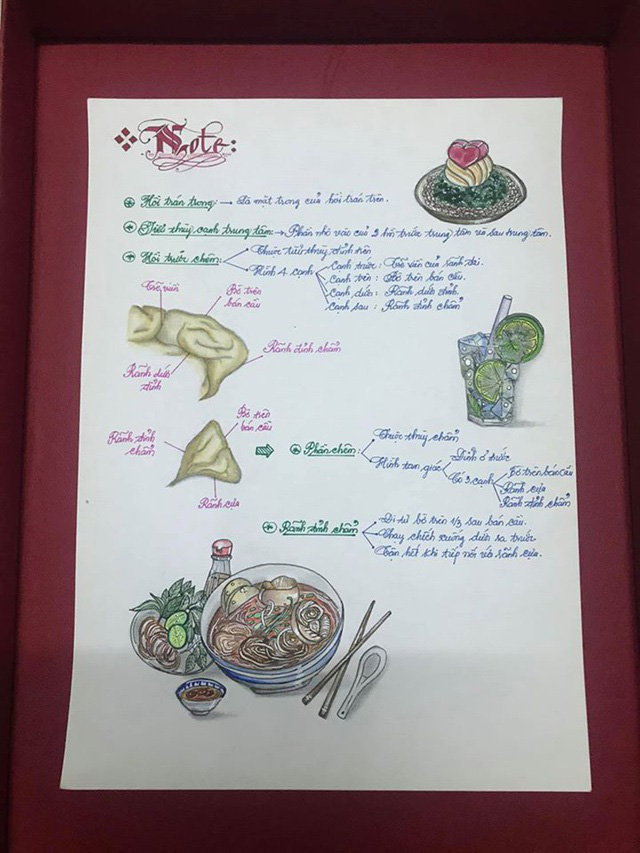 Note:
Hồi trán trong: → Là mặt trong của hồi trán trên.
Tiểu thùy cạnh trung tâm: → Phần nhô vào của 2 hồi trước trung tâm và sau trung tâm.
Hồi trước chêm:
Thuộc tiểu thùy đỉnh trên
Hình 4 cạnh
Cạnh trước: Trẽ viền của rãnh đai.
Cạnh trên: Bờ trên bán cầu.
Cạnh dưới: Rãnh dưới đỉnh.
Cạnh sau: Rãnh đỉnh chẩm
Trẽ viền
Bờ trên
bán cầu
Rãnh đỉnh chẩm
Rãnh dưới
đỉnh
Rãnh đỉnh
chẩm
Bờ trên
bán cầu
Rãnh cựa
⇒ Phần chêm:
Thuộc thùy chẩm
Hình tam giác
Đỉnh ở trước
Có 3 cạnh
Bờ trên bán cầu
Rãnh cựa
Rãnh đỉnh chẩm
Rãnh đỉnh chẩm
Đi từ bờ trên 1/3 sau bán cầu.
Chạy chếch xuống dưới ra trước
Tận hết khi tiếp nối với rãnh cựa.